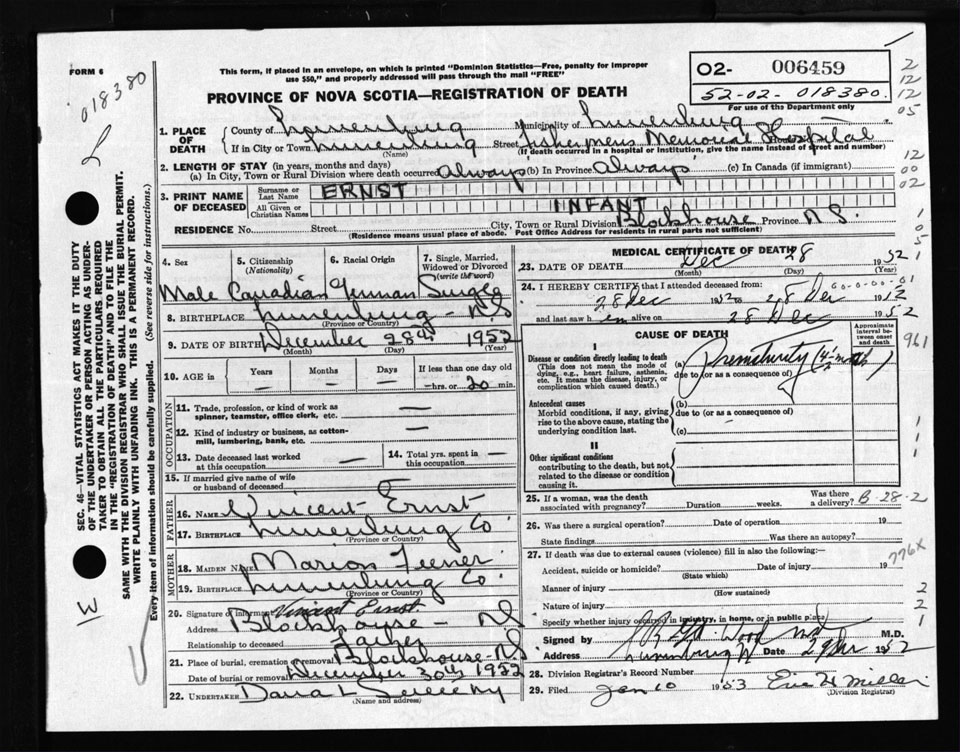 FORM 6
018380
This form, if placed in an envelope, on which is printed "Dominion Statistics—Free, penalty for improper
use $50," and properly addressed will pass through the mail "FREE"
PROVINCE OF NOVA SCOTIA—REGISTRATION OF DEATH
02- 006459
52-02-018380.
For use of the Department only
2
12
12
05
12
00
02
SEC. 46—VITAL STATISTICS ACT MAKES IT THE DUTY
OF THE UNDERTAKER OR PERSON ACTING AS UNDER-
TAKER TO OBTAIN ALL THE PARTICULARS REQUIRED
IN THE "REGISTRATION OF DEATH" AND TO FILE THE
SAME WITH THE DIVISION REGISTRAR WHO SHALL ISSUE THE BURIAL PERMIT.
WRITE PLAINLY WITH UNFADING INK. THIS IS A PERMANENT RECORD.
Every item of information should be carefully supplied. (See reverse side for instructions.)
1. PLACE OF DEATH
County of Lunenburg Municipality of Lunenburg
If in City or Town Lunenburg Street Fishermens Memorial Hospital
(Name) (If death occurred in a hospital or institution, give the name instead of street and number)
2. LENGTH OF STAY (in years, months and days)
(a) In City, Town or Rural Division where death occurred Always (b) In Province Always (c) In Canada (if immigrant)
3. PRINT NAME OF DECEASED
Surname or Last Name ERNST
All Given or Christian Names INFANT
RESIDENCE No. Street City, Town or Rural Division Blockhouse Province N.S.
(Residence means usual place of abode. Post Office Address for residents in rural parts not sufficient)
4. Sex 5. Citizenship (Nationality) 6. Racial Origin 7. Single, Married, Widowed or Divorced (write the word)
Male Canadian German Single
8. BIRTHPLACE Lunenburg - N.S
(Province or Country)
9. DATE OF BIRTH December 28th 1952
(Month) (Day) (Year)
10. AGE in Years Months Days If less than one day old
hrs. or 20 min.
OCCUPATION
11. Trade, profession, or kind of work as spinner, teamster, office clerk, etc. —
12. Kind of industry or business, as cotton-mill, lumbering, bank, etc. —
13. Date deceased last worked at this occupation — 14. Total yrs. spent in this occupation —
15. If married give name of wife or husband of deceased —
FATHER
16. NAME Vincent Ernst
17. BIRTHPLACE Lunenburg Co.
(Province or Country)
MOTHER
18. MAIDEN NAME Marion Feener
19. BIRTHPLACE Lunenburg Co.
(Province or Country)
20. Signature of informant Vincent Ernst
Address Blockhouse - NS
Relationship to deceased Father
21. Place of burial, cremation or removal Blockhouse - N.S.
Date of burial or removal December 30th 1952
22. UNDERTAKER
(Name and address)
MEDICAL CERTIFICATE OF DEATH
23. DATE OF DEATH Dec 28 1952
(Month) (Day) (Year)
24. I HEREBY CERTIFY that I attended deceased from:
28 Dec 1952 to 28 Dec 1952
and last saw h im alive on 28 Dec 1952
CAUSE OF DEATH
Approximate interval between onset and death
I
Disease or condition directly leading to death
(This does not mean the mode of dying, e.g., heart failure, asthenia, etc. It means the disease, injury, or complication which caused death.)
(a) Prematurity (4½ months)
due to (or as a consequence of)
Antecedent causes
Morbid conditions, if any, giving rise to the above cause, stating the underlying condition last.
(b)
due to (or as a consequence of)
(c)
II
Other significant conditions
contributing to the death, but not related to the disease or condition causing it.
961
25. If a woman, was the death associated with pregnancy? Duration weeks. Was there a delivery?
B-28-2
26. Was there a surgical operation? Date of operation 19
State findings Was there an autopsy?
27. If death was due to external causes (violence) fill in also the following:—
Accident, suicide or homicide? Date of injury 19
(State which)
776X
Manner of injury
(How sustained)
Nature of injury
Specify whether injury occurred in industry, in home, or in public place
Signed by Wood M.D.
Address Lunenburg Date 29 Dec 1952
28. Division Registrar's Record Number
29. Filed Jan 10 1953
(Division Registrar)